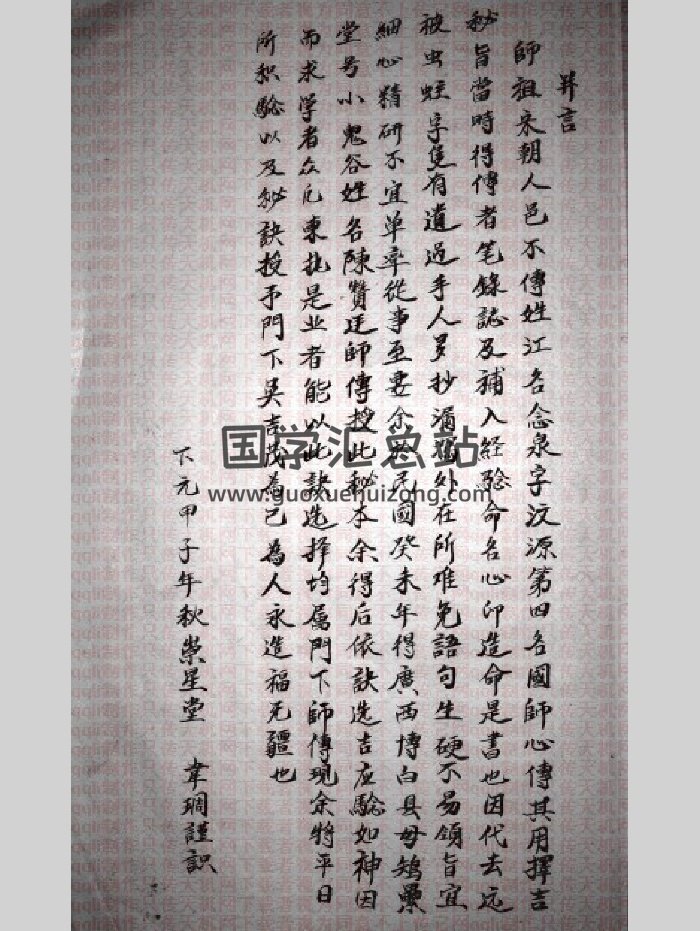 弁言
師祖宋朝人邑不傳姓江名念泉字汶源第四名國師心傳其用擇吉
秘旨當時得傳者笔錄誌及補入經驗命名心印造命是書也因代去远
被虫蛀字隻有遺過手人多抄漏 处在所难免語句生硬不易領旨宜
細心精研不宜单率從事至要余於民國癸未年得廣西博白县母鴉
堂号小鬼谷姓名陳贊廷師傳授此秘本余得后依訣选吉应驗如神因
而求学者众凡東 是业者能以此訣选择均属門下師傳現余将平日
所积驗以及秘訣授予門下吴吉茂為己為人永造福无疆也
下元甲子年秋崇星堂 韋琱謹識
国学汇总站
www.guoxuehuizong.com